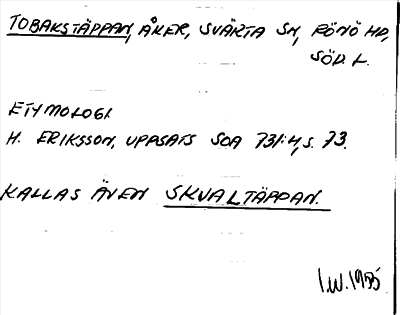 TOBAKSTÄPPAN, ÅKER, SVÄRTA SN, RÖNÖ HD,
SÖD. L.
ETYMOLOGI.
H. ERIKSSON, UPPSATS SOA 731:4, S. 73.
KALLAS ÄVEN SKVALTÄPPAN.
I.W. 1955